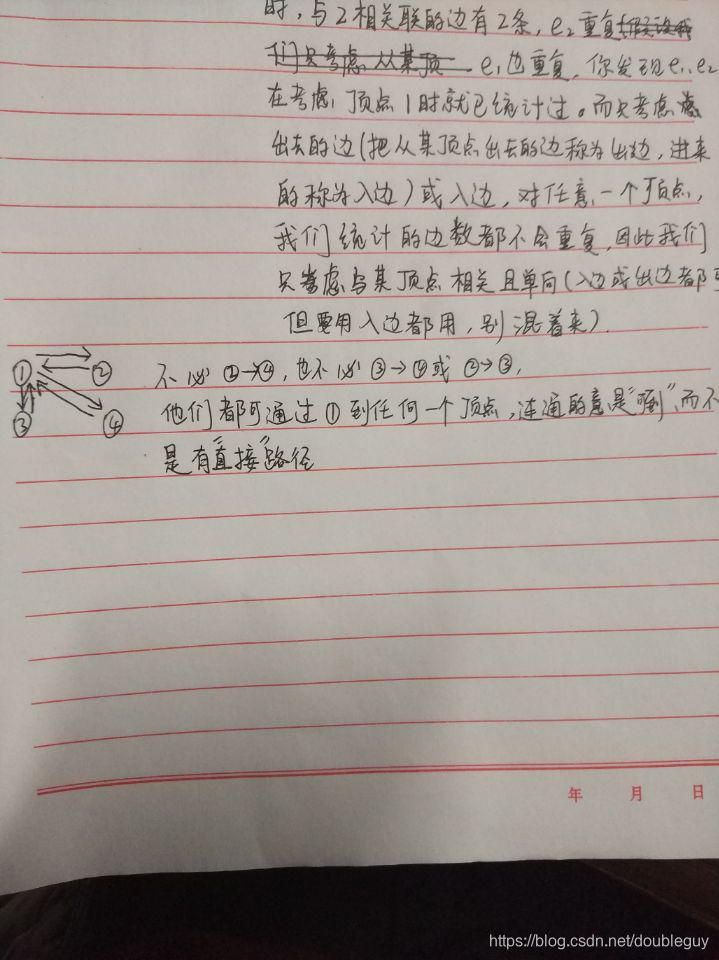 时，与2相关联的边有2条，e₂重复(假设我
们只考虑从某顶 e₁也重复，你发现e₁、e₂
在考虑顶点1时就已统计过。而只考虑
出去的边(把从某顶点出去的边称为出边，进来
的称为入边)或入边，对任意一个顶点，
我们统计的边数都不会重复，因此我们
只考虑与某顶点相关且单向(入边或出边都可
但要用入边都用，别混着来)．
① ② 不必 ②→④，也不必 ③→④或 ②→③，
③ ④ 他们都可通过①到任何一个顶点，连通的意是"到"，而不
是有"直接"路径
年 月 日
https://blog.csdn.net/doubleguy